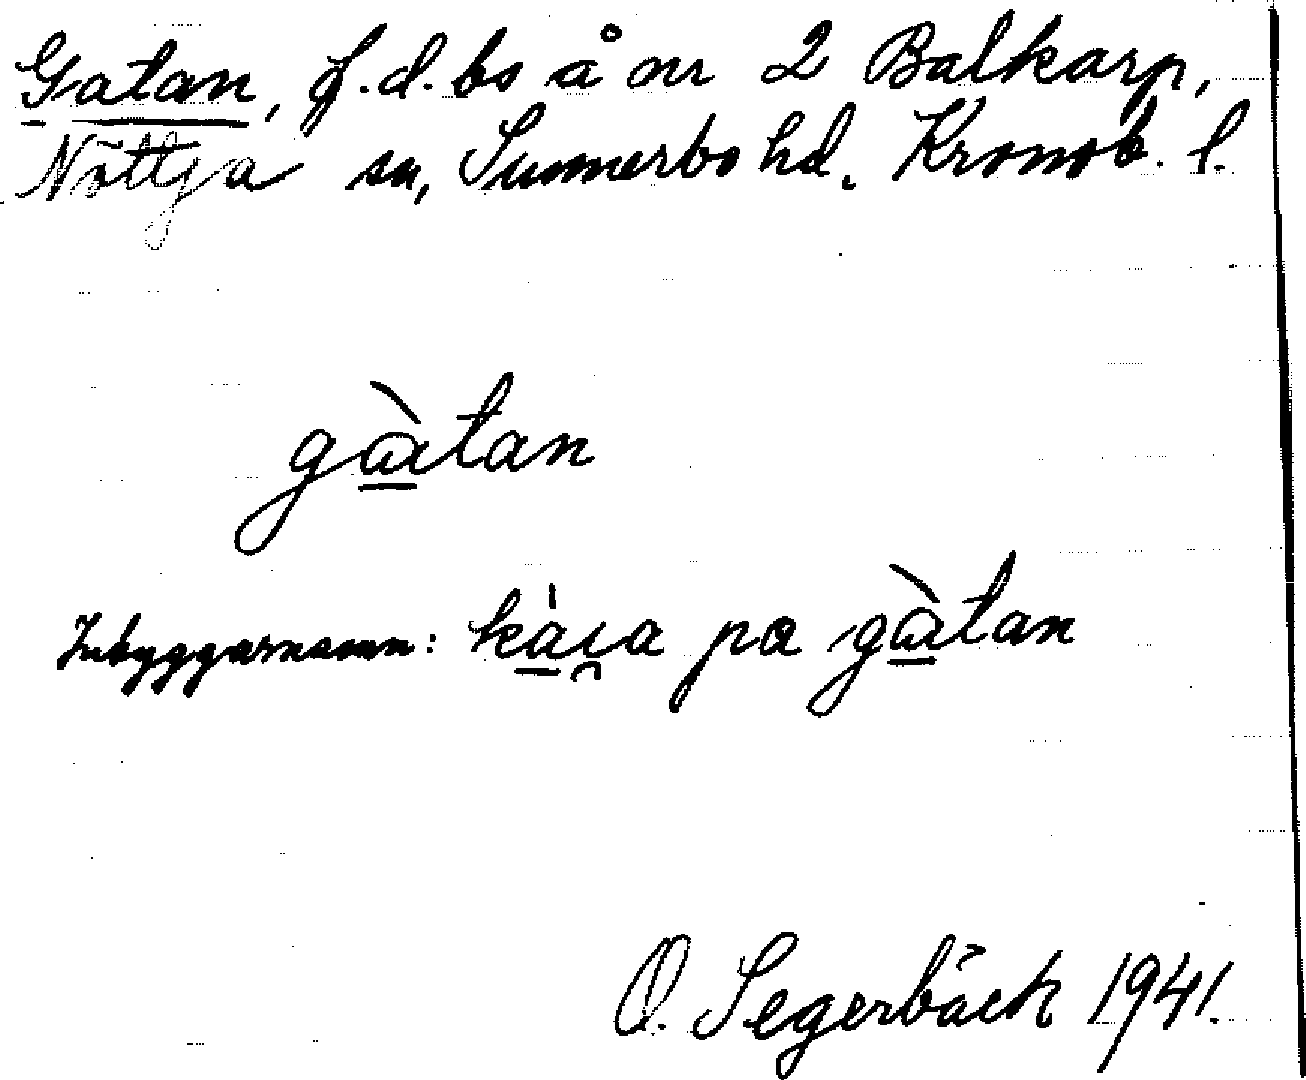 Gatan, f.d. bs å nr 2 Balkarp,
Nöttja sn, Sunnerbo hd. Kronob. l.
gàtan
Inbyggarnamn: på gàtan
O. Segerbäck 1941.